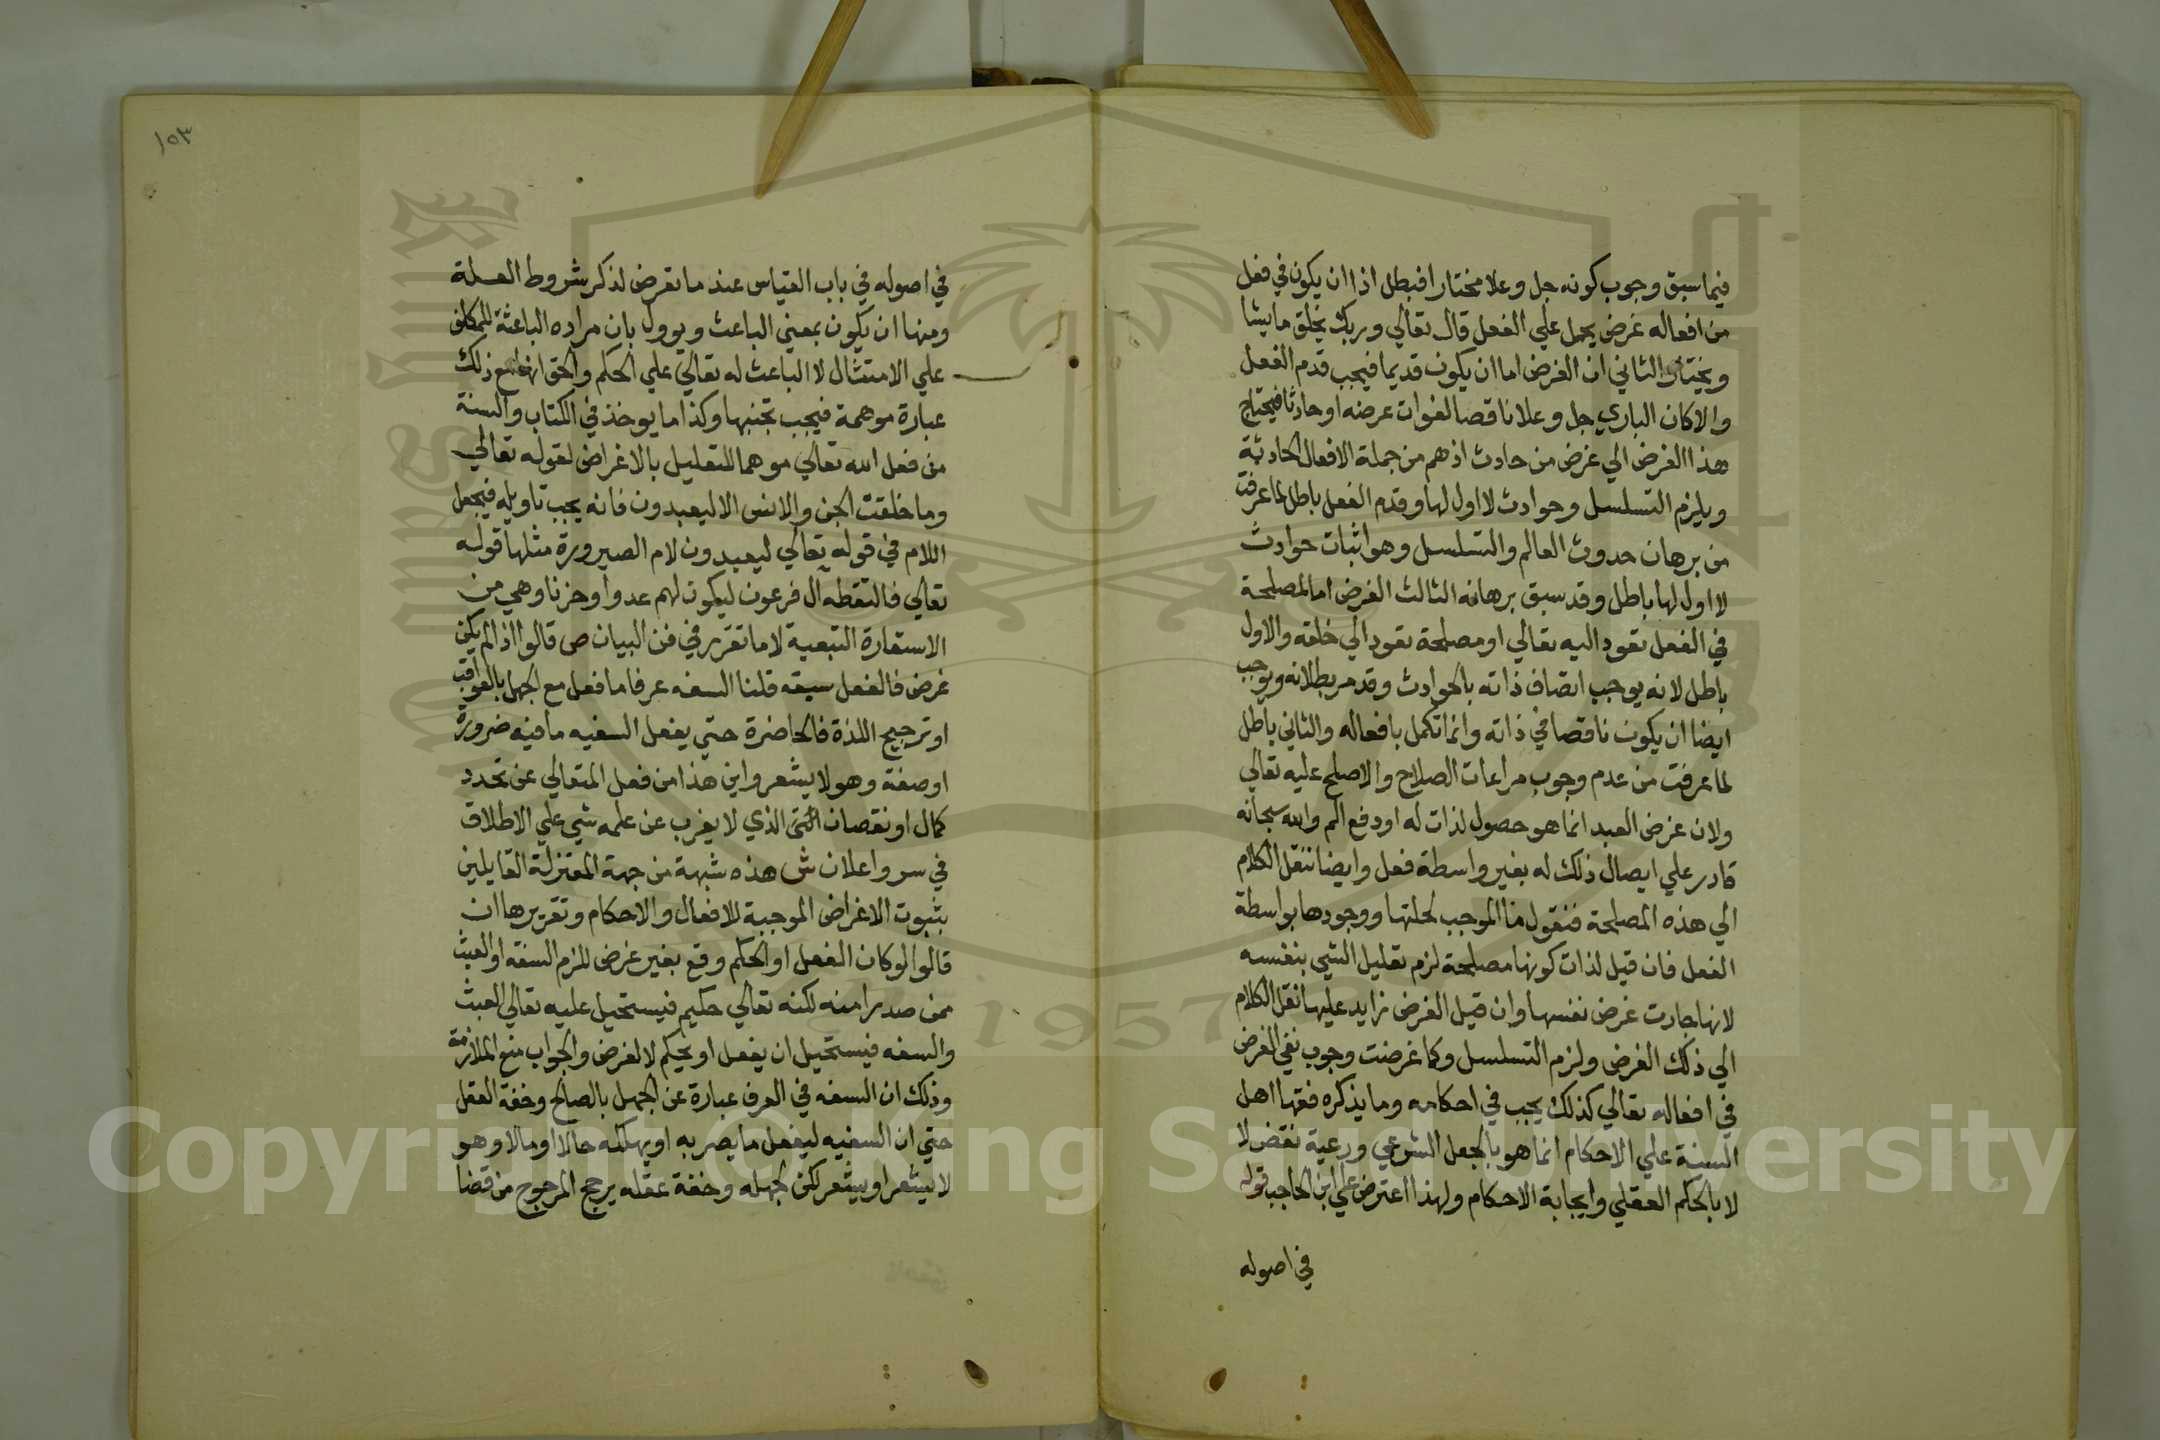 فيما سبق وجوب كونه جل وعلا مختارا فبطل اذا ان يكون في فعل
من افعاله غرض يحمل علي الفعل قال تعالي وربك يخلق ما يشا
ويختار الثاني ان الغرض اما ان يكون قديما فيجب قدم الفعل
والا كان الباري جل وعلا ناقصا لفوات عرضه او حادثا فيحتاج
هذا الغرض الي غرض من حادث اذ هم من جملة الافعال الحادثة
ويلزم التسلسل وحوادث لا اول لها وقدم الفعل باطل لما عرفت
من برهان حدوث العالم والتسلسل وهو اثبات حوادث
لا اول لها باطل وقد سبق برهانه الثالث الغرض اما لمصلحة
في الفعل تعود اليه تعالي او مصلحة تعود الي خلقه والاول
باطل لانه يوجب اتصاف ذاته بالحوادث وقد مر بطلانه ويوجب
ايضا ان يكون ناقصا في ذاته وانما تكمل بافعاله والثاني باطل
لما عرفت من عدم وجوب مراعات الصلاح والاصلح عليه تعالي
ولان غرض العبد انما هو حصول لذات له او دفع الم والله سبحانه
قادر علي ايصال ذلك له بغير واسطة فعل وايضا ننقل الكلام
الي هذه المصلحة فنقول ما الموجب لحلتها ووجودها بواسطة
الفعل فان قيل لذات كونها مصلحة لزم تعليل الشي بنفسه
لانها جارت غرض نفسها وان قيل الغرض زايد عليها نقل الكلام
الي ذلك الغرض ولزم التسلسل وكما غرضت وجوب نفي الغرض
في افعاله تعالي كذلك يجب في احكامه وما يذكره فقها اهل
السنة علي الاحكام انما هو بالجعل الشرعي ورعية نقض لا
لا بالحكم العقلي وايجابة الاحكام ولهذا اعترض علي ابن الحاجب قوله
في اصوله
١٥٣
في اصوله في باب القياس عند ما تعرض لذكر شروط العلة
ومنها ان يكون بمعني الباعث ويوول بان مراده الباعثة للمكلف
علي الامتثال لا الباعث له تعالي علي الحكم والحق انها مع ذلك
عبارة موهمة فيجب تجنبها وكذا ما يوخذ في الكتاب والسنة
من فعل الله تعالي موهما للتعليل بالاغراض لقوله تعالي
وما خلقت الجن والانس الا ليعبدون فانه يجب تاويله فيجعل
اللام في قوله تعالي ليعبدون لام الصيرورة مثلها قوله
تعالي فالتقطه ال فرعون ليكون لهم عدوا وحزنا وهي من
الاستعارة التبعية لاما تقرر في فن البيان ص قالوا اذ الم يكن
غرض فالفعل سيقه قلنا السفه عرفا ما فعل مع الجهل بالعواقب
او ترجيح اللذة فالحاضرة حتي يفعل السفيه ما فيه ضرورة
او صفته وهو لا يشعر واين هذا من فعل المتعالي عن تجدد
كمال او نقصان الذي لا يغرب عن علمه شي علي الاطلاق
في سر واعلان ش هذه شبهة من جهة المعتزلة القايلين
بثبوت الاغراض الموجبة للافعال والاحكام وتقريرها ان
قالوا لو كان الفعل او الحكم وقع بغير غرض للزم السفه او العبث
ممن صدر امنه لكنه تعالي حكيم فيستحيل عليه تعالي العبث
والسفه فيستحيل ان يفعل او يحكم لا لغرض والجواب منع الملازمة
وذلك ان السفه في العرف عبارة عن الجهل بالصالح وخفة العقل
حتي ان السفيه ليفعل ما يضر به او يهلكه حالا او مالا وهو
لا يشعر او يشعر لكن لجهله وخفة عقله يرجح المرجوح من قضا
King Saud University
1957
Copyright © King Saud University